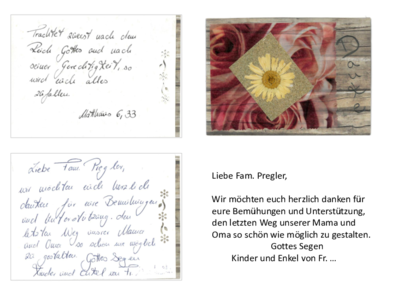 Trachtet zuerst nach dem
Reich Gottes und nach
seiner Gerechtigkeit, so
wird euch alles
zufallen
Matthäus 6,33
Danke!
Liebe Fam. Pregler,
wir möchten euch herzlich
danken für eure Bemühungen
und Unterstützung, den
letzten Weg unserer Mama
und Oma so schön wie möglich
zu gestalten. Gottes Segen
Kinder und Enkel von Fr.
Liebe Fam. Pregler,
Wir möchten euch herzlich danken für
eure Bemühungen und Unterstützung,
den letzten Weg unserer Mama und
Oma so schön wie möglich zu gestalten.
Gottes Segen
Kinder und Enkel von Fr. ...